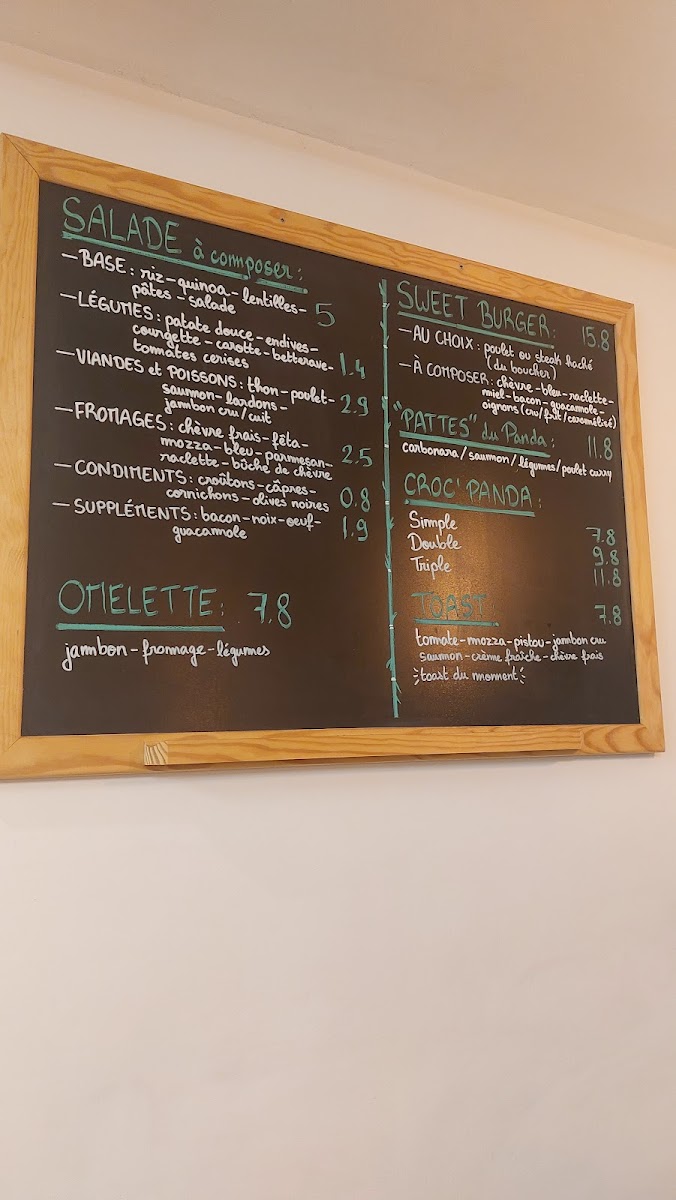 SALADE à composer:
- BASE: riz - quinoa - lentilles -
pâtes - salade 5
- LÉGUMES: patate douce - endives -
courgette - carotte - betterave -
tomates cerises 1.4
- VIANDES et POISSONS: thon - poulet -
saumon - lardons -
jambon cru/cuit 2.9
- FROMAGES: chèvre frais - fêta -
mozza - bleu - parmesan -
raclette - bûche de chèvre 2.5
- CONDIMENTS: croûtons - câpres -
cornichons - olives noires 0.8
- SUPPLÉMENTS: bacon - noix - oeuf -
guacamole 1.9
OMELETTE: 7.8
jambon - fromage - légumes
SWEET BURGER: 15.8
- AU CHOIX: poulet ou steak haché
(du boucher)
- À COMPOSER: chèvre - bleu - raclette -
miel - bacon - guacamole -
oignons (cru/frit/caramélisé)
"PATTES" du Panda: 11.8
carbonara/saumon/légumes/poulet curry
CROC' PANDA:
Simple 7.8
Double 9.8
Triple 11.8
TOAST: 7.8
tomate - mozza - pistou - jambon cru
saumon - crème fraîche - chèvre frais
toast du moment